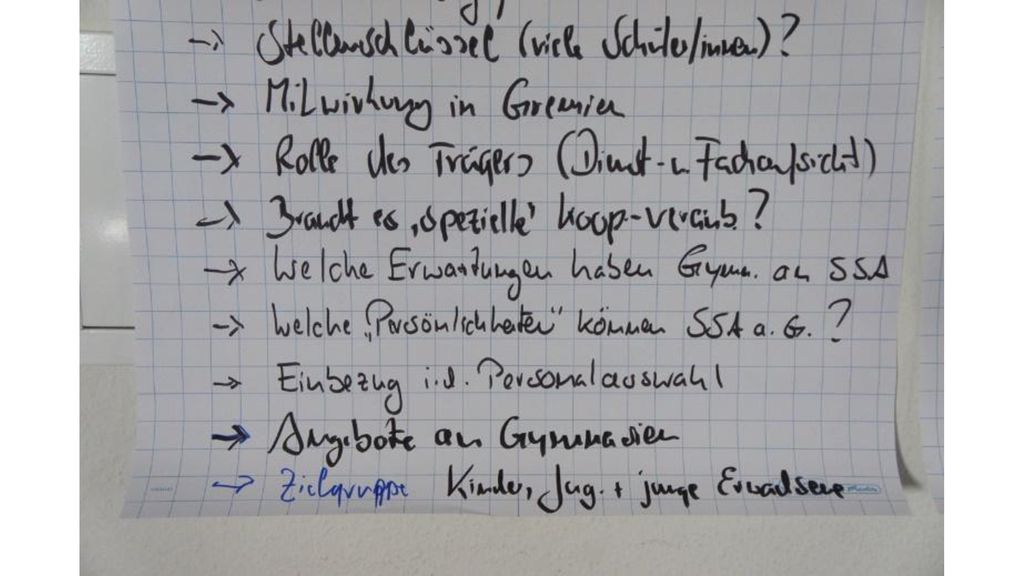 -> Stellenschlüssel (viele Schüler/innen)?
-> Mitwirkung in Gremien
-> Rolle des Trägers (Dienst- u. Fachaufsicht)
-> Braucht es "spezielle" Koop-Vereinb.?
-> Welche Erwartungen haben Gymn. an SSA
-> Welche "Persönlichkeiten" können SSA a. G.?
-> Einbezug i.d. Personalauswahl
-> Angebote an Gymnasien
-> Zielgruppe Kinder, Jug. + junge Erwachsene